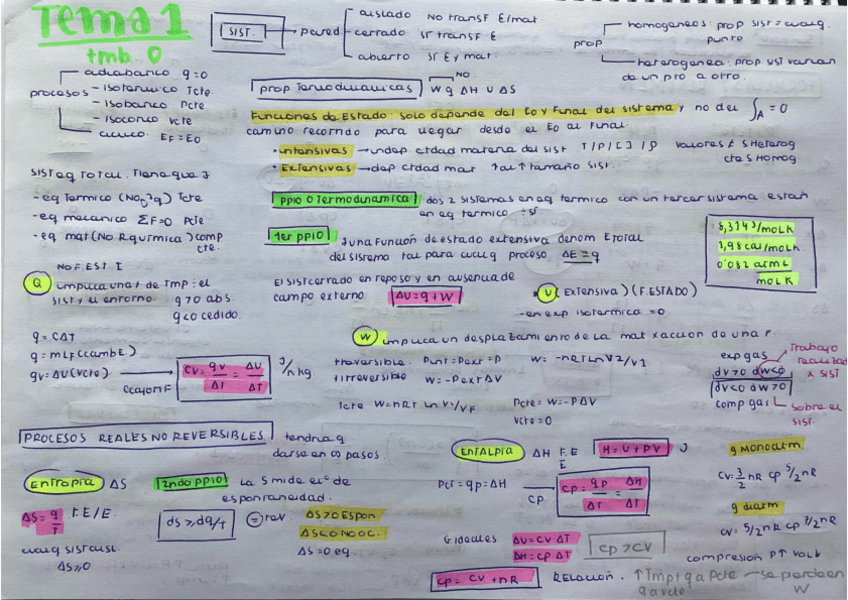 Tema 1
tmb. 0
SIST. → pared
aislado No transf E/mat.
cerrado sí transf E
abierto sí E y mat.
prop
homogeneos: prop sist = cualq. punto
heterogenea: prop sist varian de un pto a otro.
procesos
adiabatico q=0
- isotermico Tcte.
- isobarico Pcte
- isocorico Vcte
ciclico. EF = E0
prop Termodinamicas NO W q ΔH U ΔS
Funciones de Estado: solo depende del E0 y Final del sistema y no del ∫A = 0
camino recorrido para llegar desde el E0 al final.
• intensivas → indep ctdad materia del sist T/P/[ ]/ρ valores ≠ s Heterog
cte s Homog
• Extensivas → dep ctdad mat ↑al ↑tamaño sist.
sist eq Total. Tiene que
- eq Termico Tcte
- eq mecanico ΣF=0 Pcte
- eq mat (No R quimica) comp cte.
ppio 0 Termodinamica dos 2 sistemas en eq termico con un tercer sistema estan
en eq termico
1er ppio ∃ una Función de estado extensiva denom E total
del sistema tal para cualq proceso, ΔE = q
8,314 J/mol K
1,98 cal/mol K
0'082 atm L
mol K
NO F. EST
Q implica una de Tmp: el
sist y el entorno q>0 abs.
q<0 cedido.
El sist cerrado en reposo y en ausencia de
campo externo ΔU = q + W
* U (Extensiva) (F. ESTADO)
- en exp isotermica = 0
W implica un desplazamiento de la mat x accion de una F
q = CΔT
q = mLf (camb E.)
qv = ΔU (Vcte) → Cv = qv/ΔT = ΔU/ΔT
T reversible. Pint = Pext = P W = -nRT ln V2/V1
T irreversible W = -Pext ΔV
Tcte W = nRT ln Vi/VF Pcte = W = -PΔV
Vcte = 0
exp gas
dV>0 dW<0
dV<0 dW>0
comp gas
Trabajo realizad x SIST
sobre el SIST.
PROCESOS REALES NO REVERSIBLES tendria q
darse en ∞ pasos.
Entropia ΔS 2ndo ppio La S mide el º de
espontaneidad.
ΔS = q/T F.E/E.
dS ≥ dq/T = rev
ΔS>0 Espon.
ΔS<0 NO OC.
ΔS = 0 eq.
cualq sist aisl
ΔS≥0
Entalpia ΔH F.E
E
H = U + PV J
Pct = qp = ΔH
CP
Cp = qp/ΔT = ΔH/ΔT
G. ideales ΔU = CV ΔT
ΔH = CP ΔT
CP > CV
Cp = CV + nR RELACION.
g monoatm.
CV = 3/2 nR CP 5/2 nR
g diatm
CV = 5/2 nR CP 7/2 nR
compresion P↑ Vol↓
↑Tmp q a Pcte → se pierde en W
q a Vcte